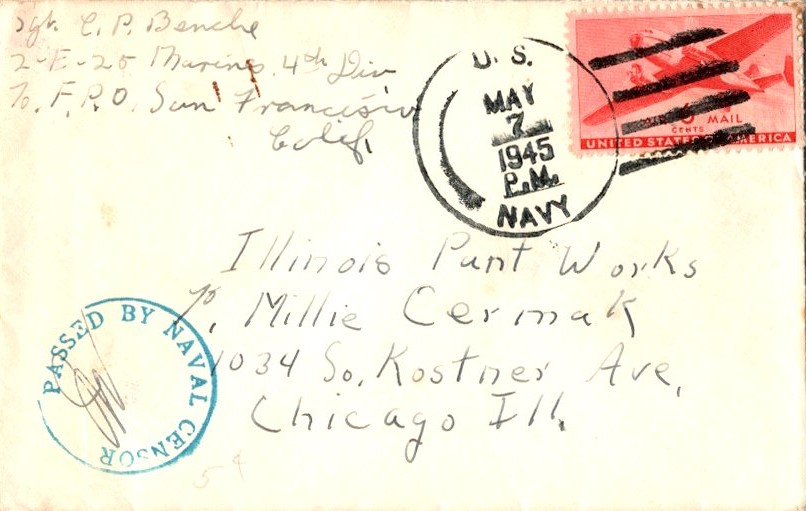 Sgt. C. P. Benche
2-E-25 Marines, 4th Div
To, F.P.O. San Francisco
Calif.
U. S.
MAY
7
1945
P.M.
NAVY
AIR 6 MAIL
CENTS
UNITED STATES OF AMERICA
Illinois Pant Works
%, Millie Cermak
1034 So. Kostner Ave,
Chicago Ill.
PASSED BY NAVAL CENSOR
5¢